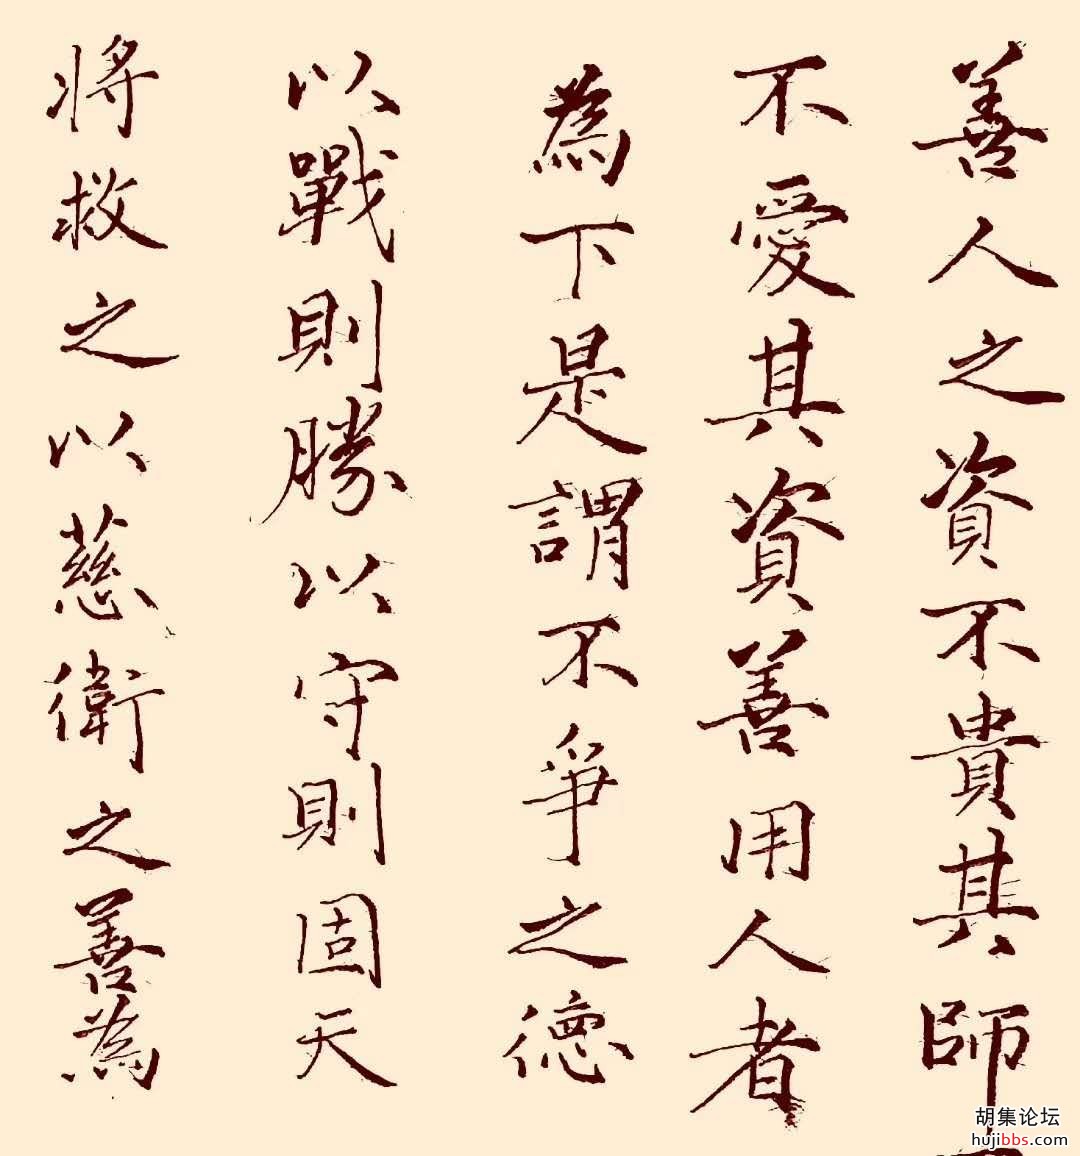 善人之資不貴其師
不愛其資善用人者
為下是謂不爭之德
以戰則勝以守則固天
將救之以慈衛之善為
胡集论坛
hujibbs.com